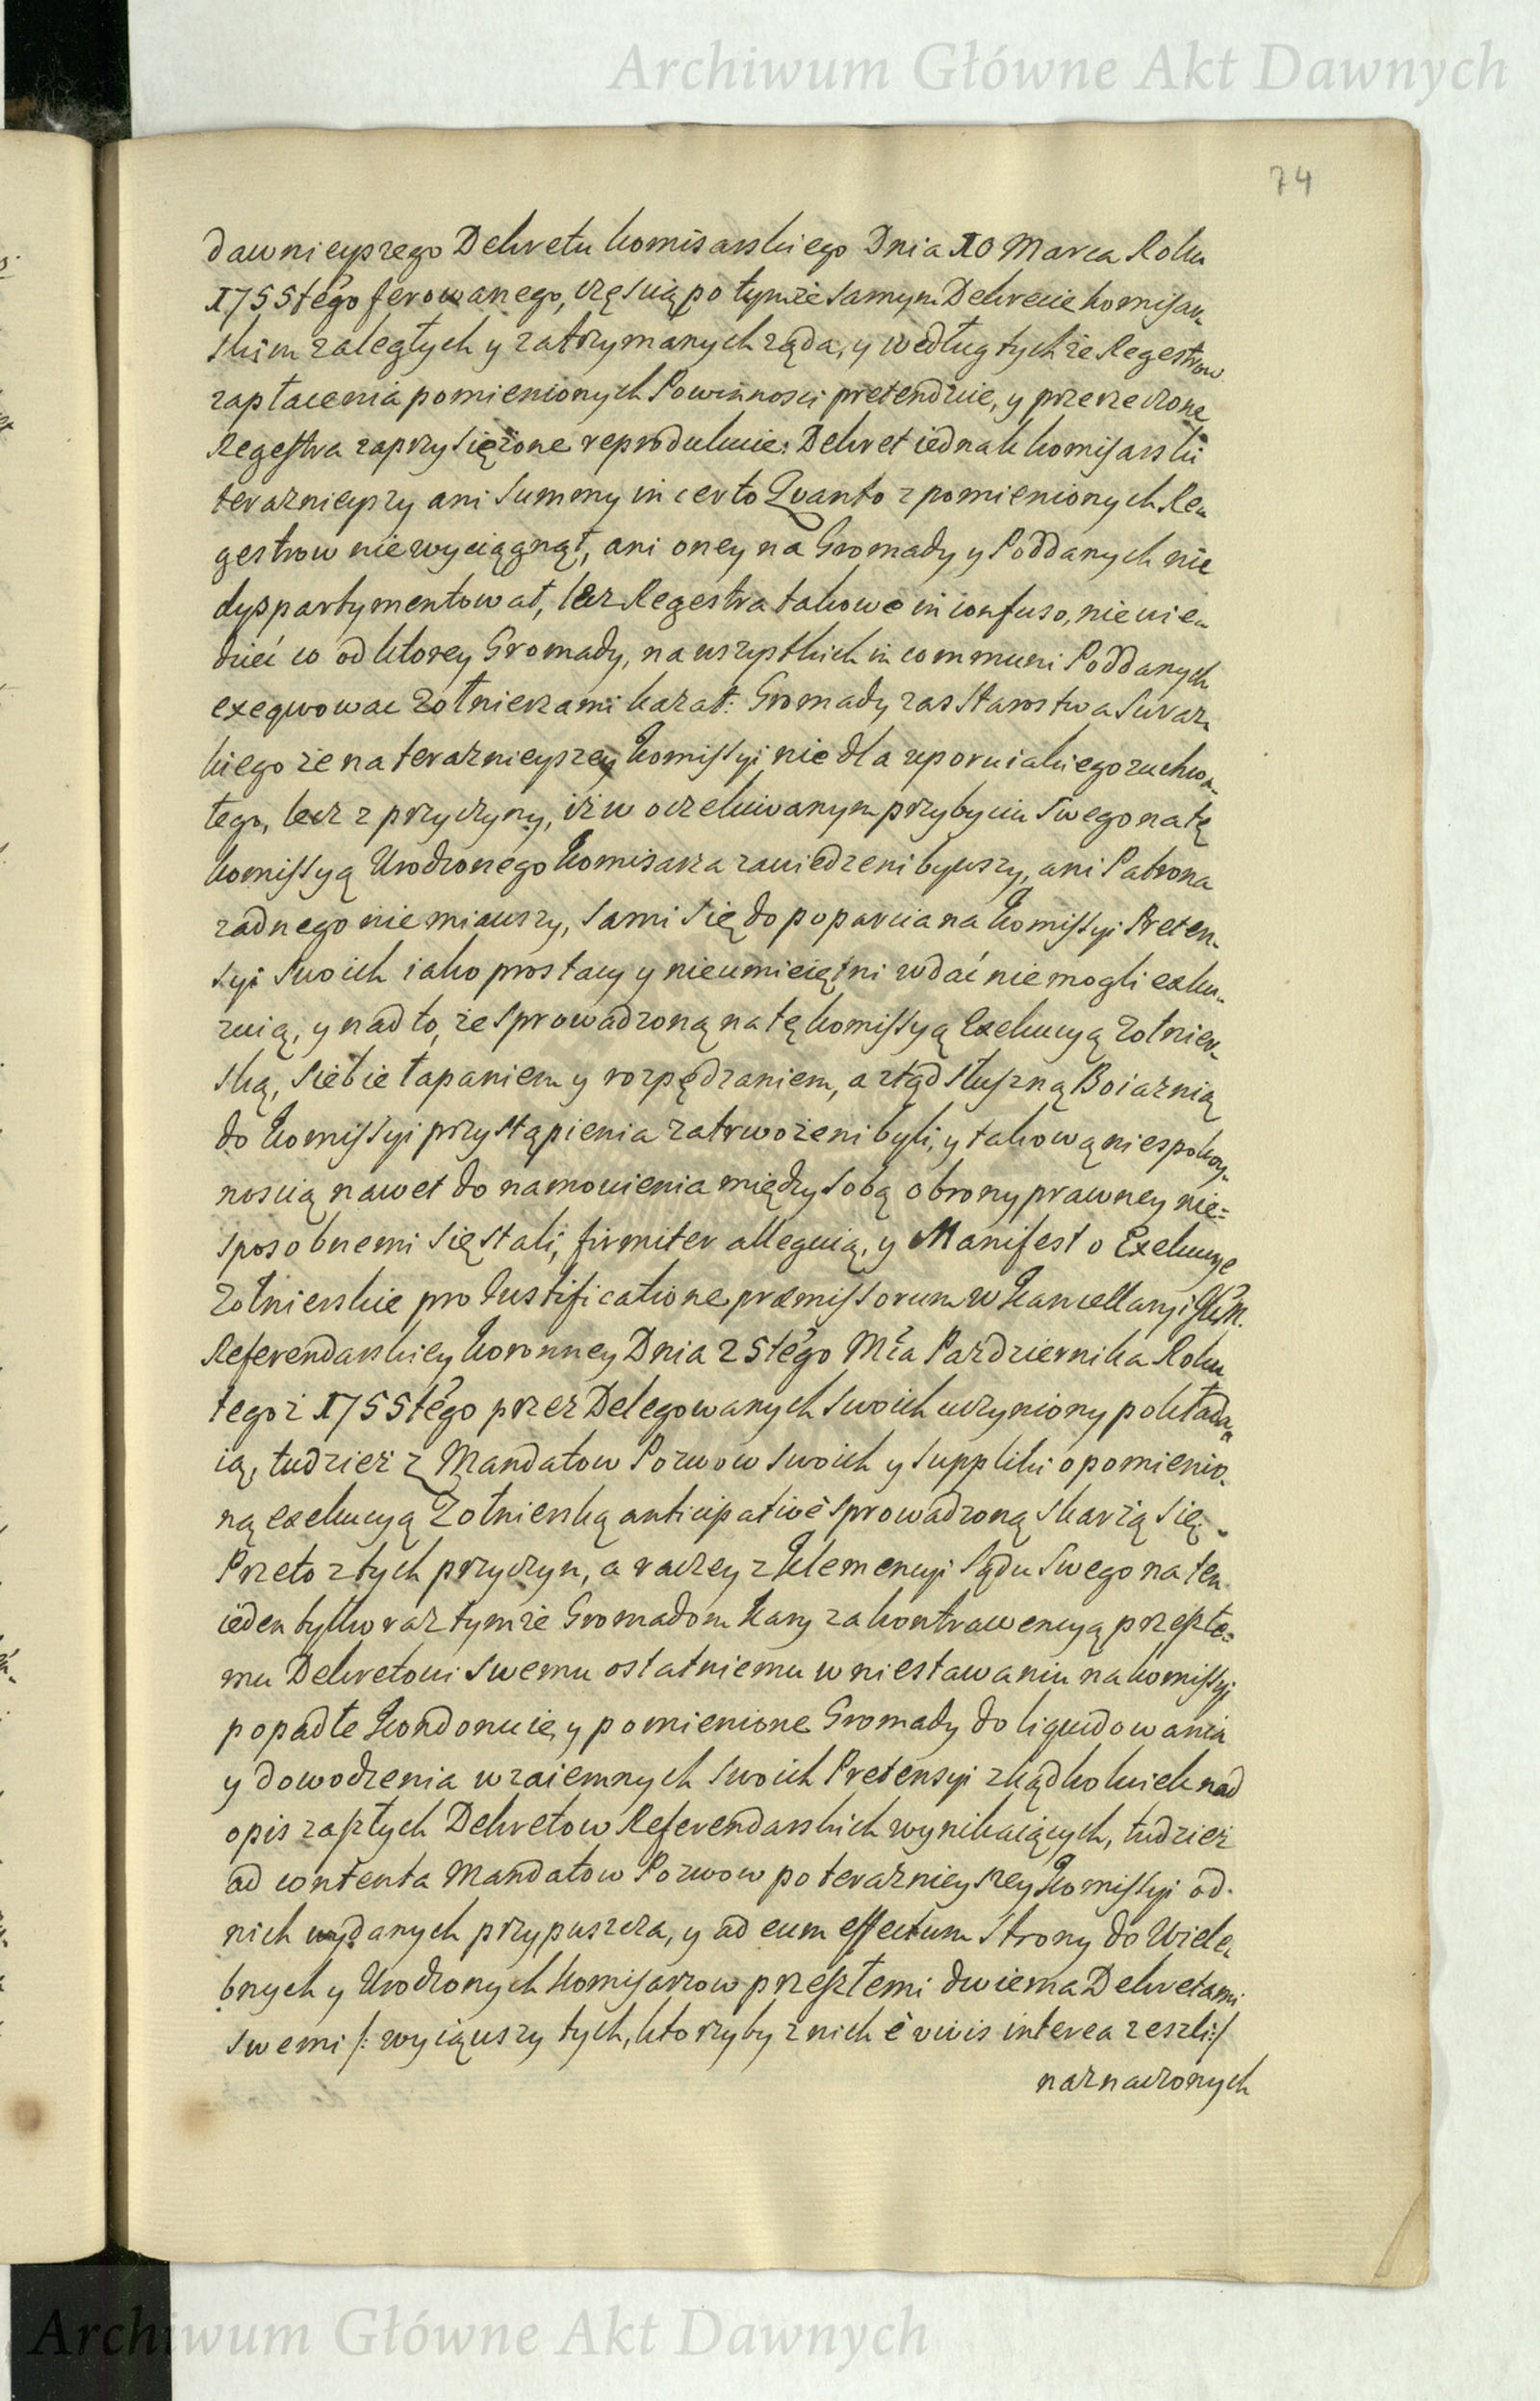 Archiwum Główne Akt Dawnych
74
dawnieyszego Dekretu komisarskiego Dnia 10 Marca Roku
1755tego ferowanego, częścią po tymże samym Dekrecie komisar-
skim zaległych y zatrzymanych ząda, y według tychże Regestrow
zapłacenia pomienionych Powinnosci pretenduie, y przerzeczone
Regestra zaprzysiężone reprodukuie: Dekret iednak komisarski
teraznieyszy ani Summy in certo Quanto z pomienionych Re-
gestrow nie wyciągnął, ani oney na Gromady y Poddanych nie
dyspartymentował, lecz Regestra takowe in confuso, nie wie-
dzieć co od ktorey Gromady, na wszystkich in communi Poddanych
exeqwowac Zołnierzami kazał: Gromady zas Starostwa Suraz-
kiego ze na teraznieyszey Komissyi nie dla uporu iakiego zuchwa-
łego, lecz z przyczyny, iż w oczekiwanym przybyciu swego na tę
komissyą Urodzonego Komisarza zawiedzeni bywszy, ani Patrona
zadnego nie miawszy, sami się do poparcia na Komissyi Preten-
syi swoich iako prostacy y nieumieiętni wdać nie mogli exku-
zuią, y nad to, że sprowadzoną na tę komissyą Exekucyą Zołnier-
ską, siebie łapaniem y rozpędzaniem, a ztąd słuszną Boiaznią
do Komissyi przystąpienia zatrwożeni byli, y takową niespokoy-
noscią nawet do namowienia między sobą obrony prawney nie=
sposobnemi się stali, firmiter alleguią, y Manifest o Exekucye
Zołnierskie pro Justificatione præmissorum w Kancellaryi
Referendarskiey Koronney Dnia 25tego Mca Pazdziernika Roku
tegoż 1755tego przez Delegowanych swoich uczyniony pokłada-
ią, tudzież z Mandatow Pozwow swoich y suppliki o pomienio-
ną exekucyą Zołnierską anticipativè sprowadzoną skarżą się.
Przeto z tych przyczyn, a raczey z Klemencyi Sądu swego na ten
ieden tylko raz tymże Gromadom Kary za kontrawencyą przeszłe=
mu Dekretowi swemu ostatniemu w niestawaniu na komissyi
popadłe Kondonuie, y pomienione Gromady do liquidowania
y dowodzenia wzaiemnych swoich Pretensyi zkądkolwiek nad
opis zaszłych Dekretow Referendarskich wynikaiących, tudzież
ad contenta Mandatow Pozwow po teraznieyszey Komissyi od
nich wydanych przypuszcza, y ad eum effectum Strony do Wiele-
bnych y Urodzonych Komisarzow przeszłemi dwiema Dekretami
swemi /: wyiąwszy tych, ktorzyby z nich è vivis interea zeszli :/
naznaczonych
Archiwum Główne Akt Dawnych